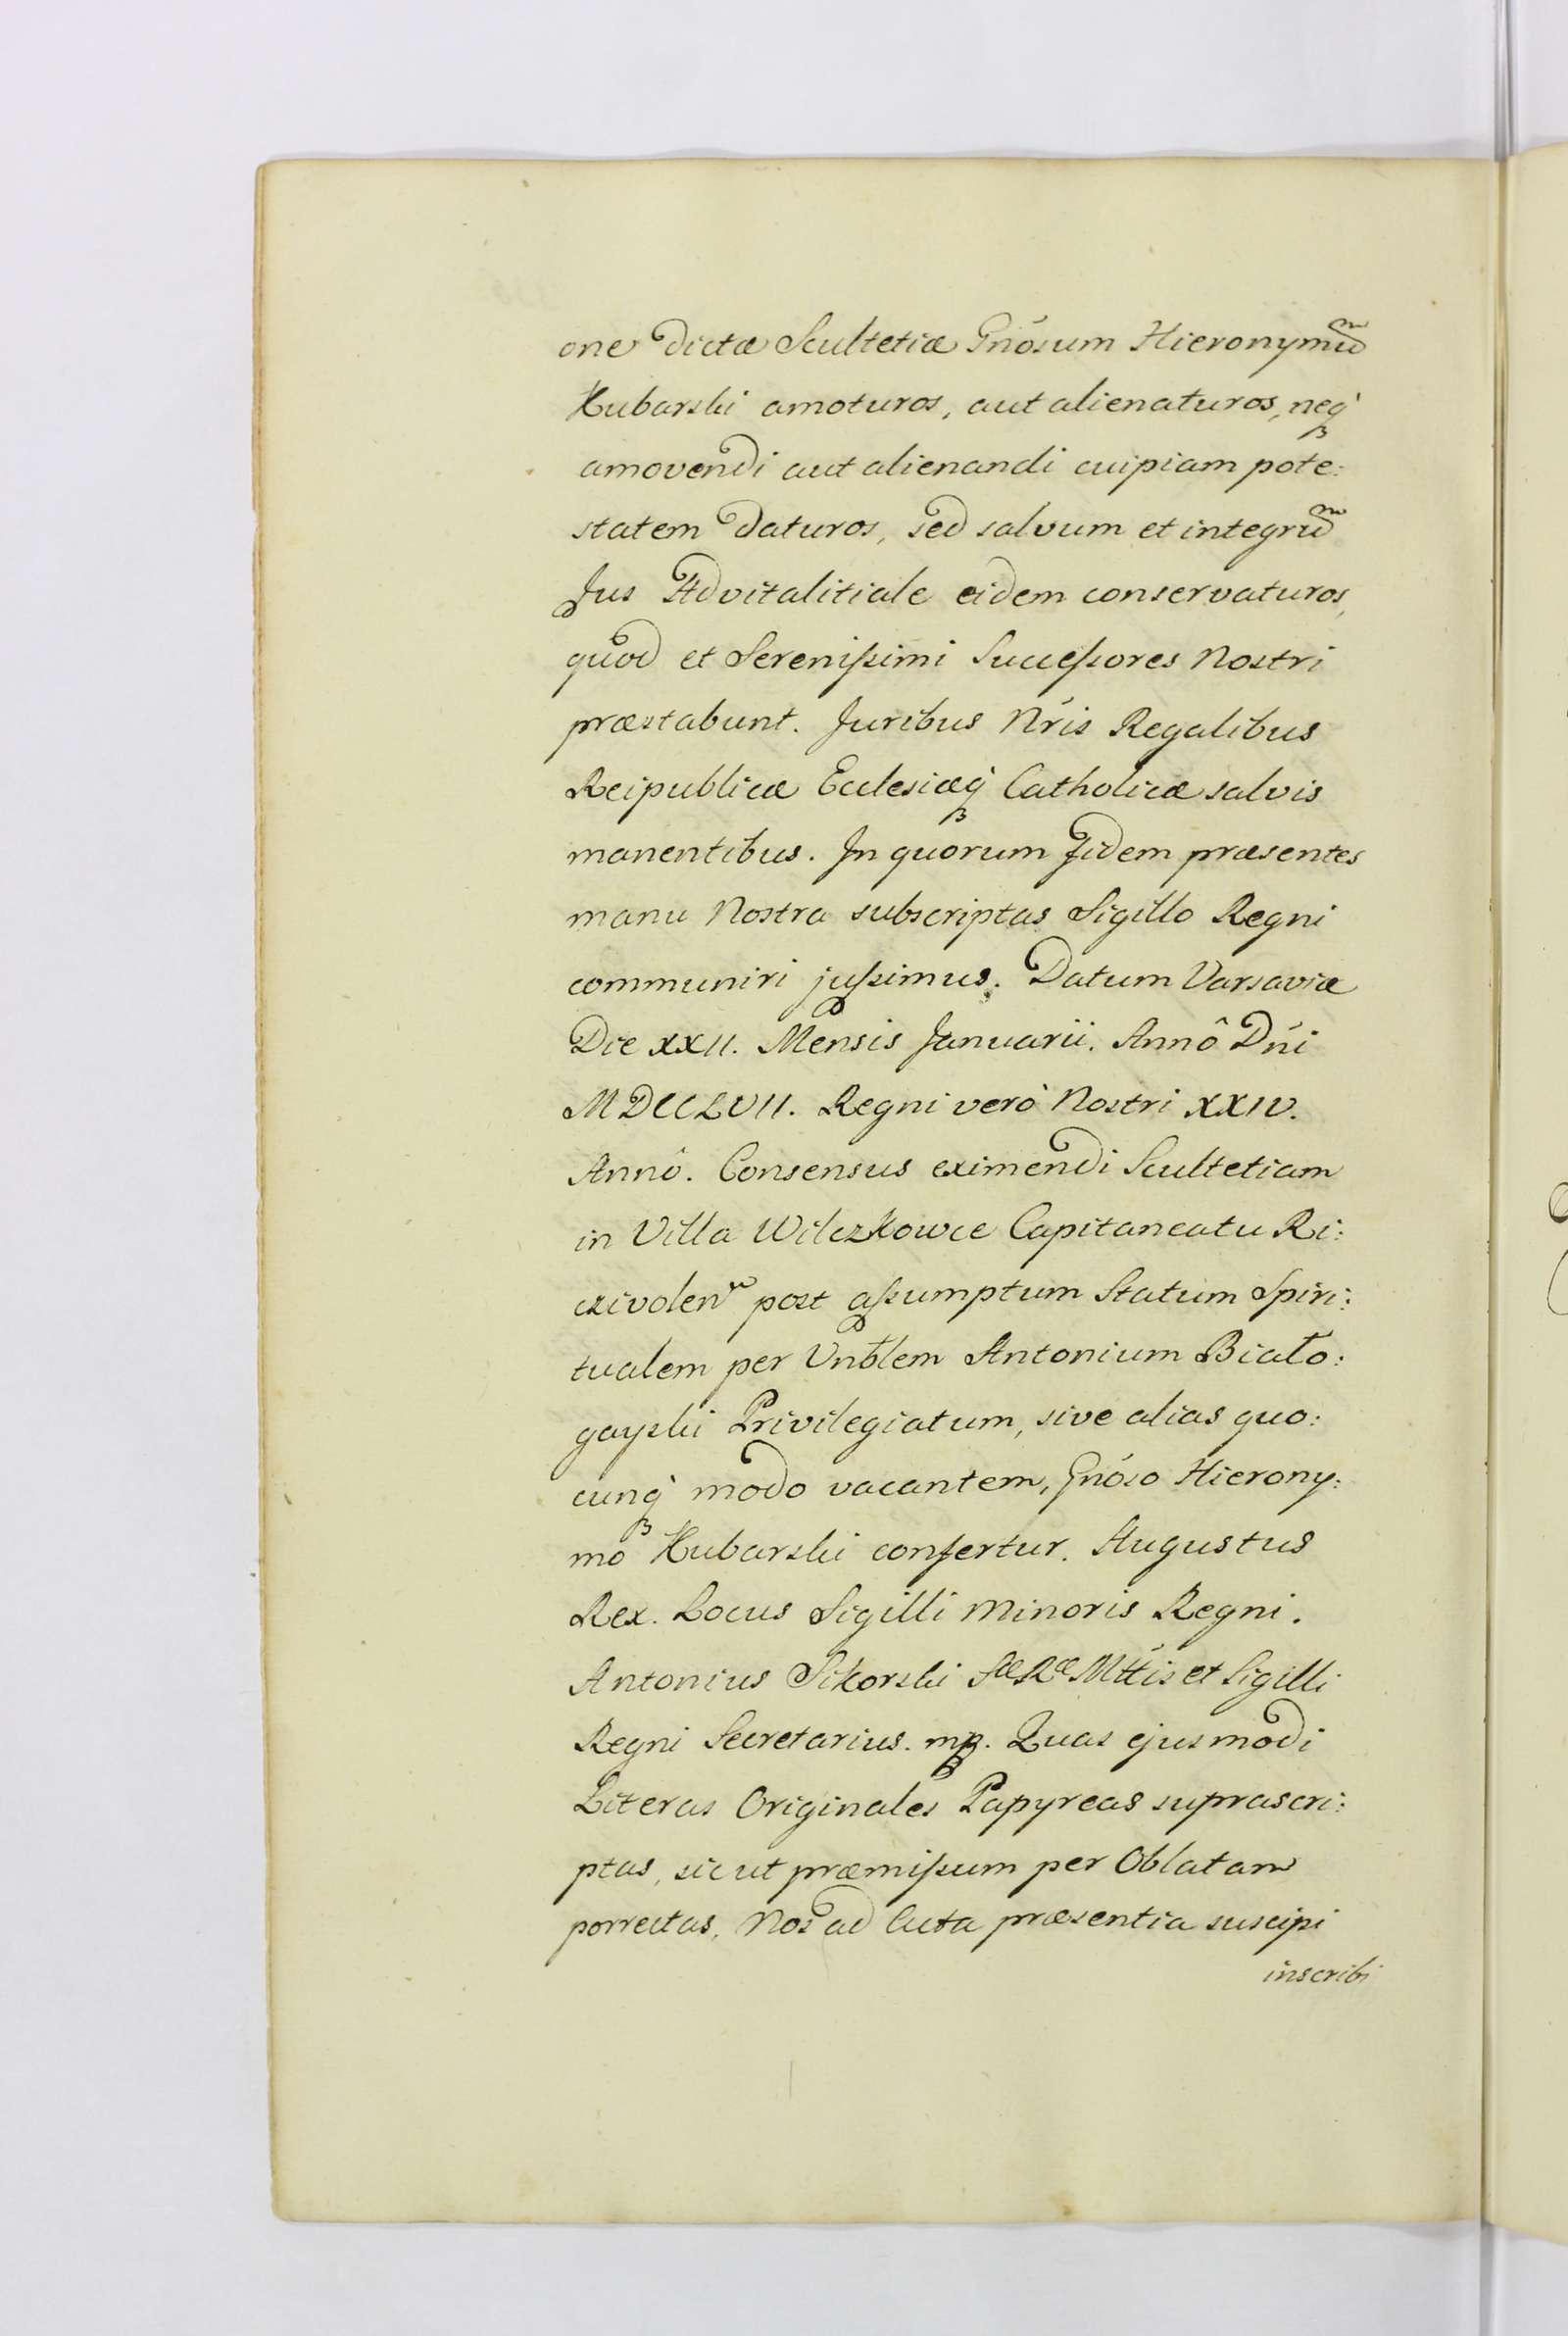 one dictæ Scultetiæ Gnósum Hieronymũ
Kubarski amoturos, aut alienaturos, neq́
amovendi aut alienandi cuipiam pote:
statem daturos, sed salvum et integrũ
Jus Advitalitiale eidem conservaturos,
quod et Serenißimi Succeßores Nostri
præstabunt. Juribus Nŕis Regalibus
Reipublicæ Ecclesiæq́ Catholicæ salvis
manentibus. In quorum fidem præsentes
manu Nostra subscriptas Sigillo Regni
communiri jußimus. Datum Varsaviæ
Die XXII. Mensis Januarii. Annô Dńi
MDCCLVII. Regni verò Nostri XXIV.
Annô. Consensus eximendi Scultetiam
in Villa Wilczkowce Capitaneatu Ri:
czivolen̄ post aßumptum Statum Spiri:
tualem per Vnƀlem Antonium Biało:
gayski Privilegiatum, sive alias quo:
cunq́ modo vacantem, Gnóso Hierony:
mo Kubarski confertur. Augustus
Rex. Locus Sigilli Minoris Regni.
Antonius Sikorski Sæ Ræ Mttís et Sigilli
Regni Secretarius. mp. Quas ejusmodi
Literas Originales Papyreas suprascri:
ptas, sicut præmißum per Oblatam
porrectas, Nos ad Acta præsentia suscipi
inscribi